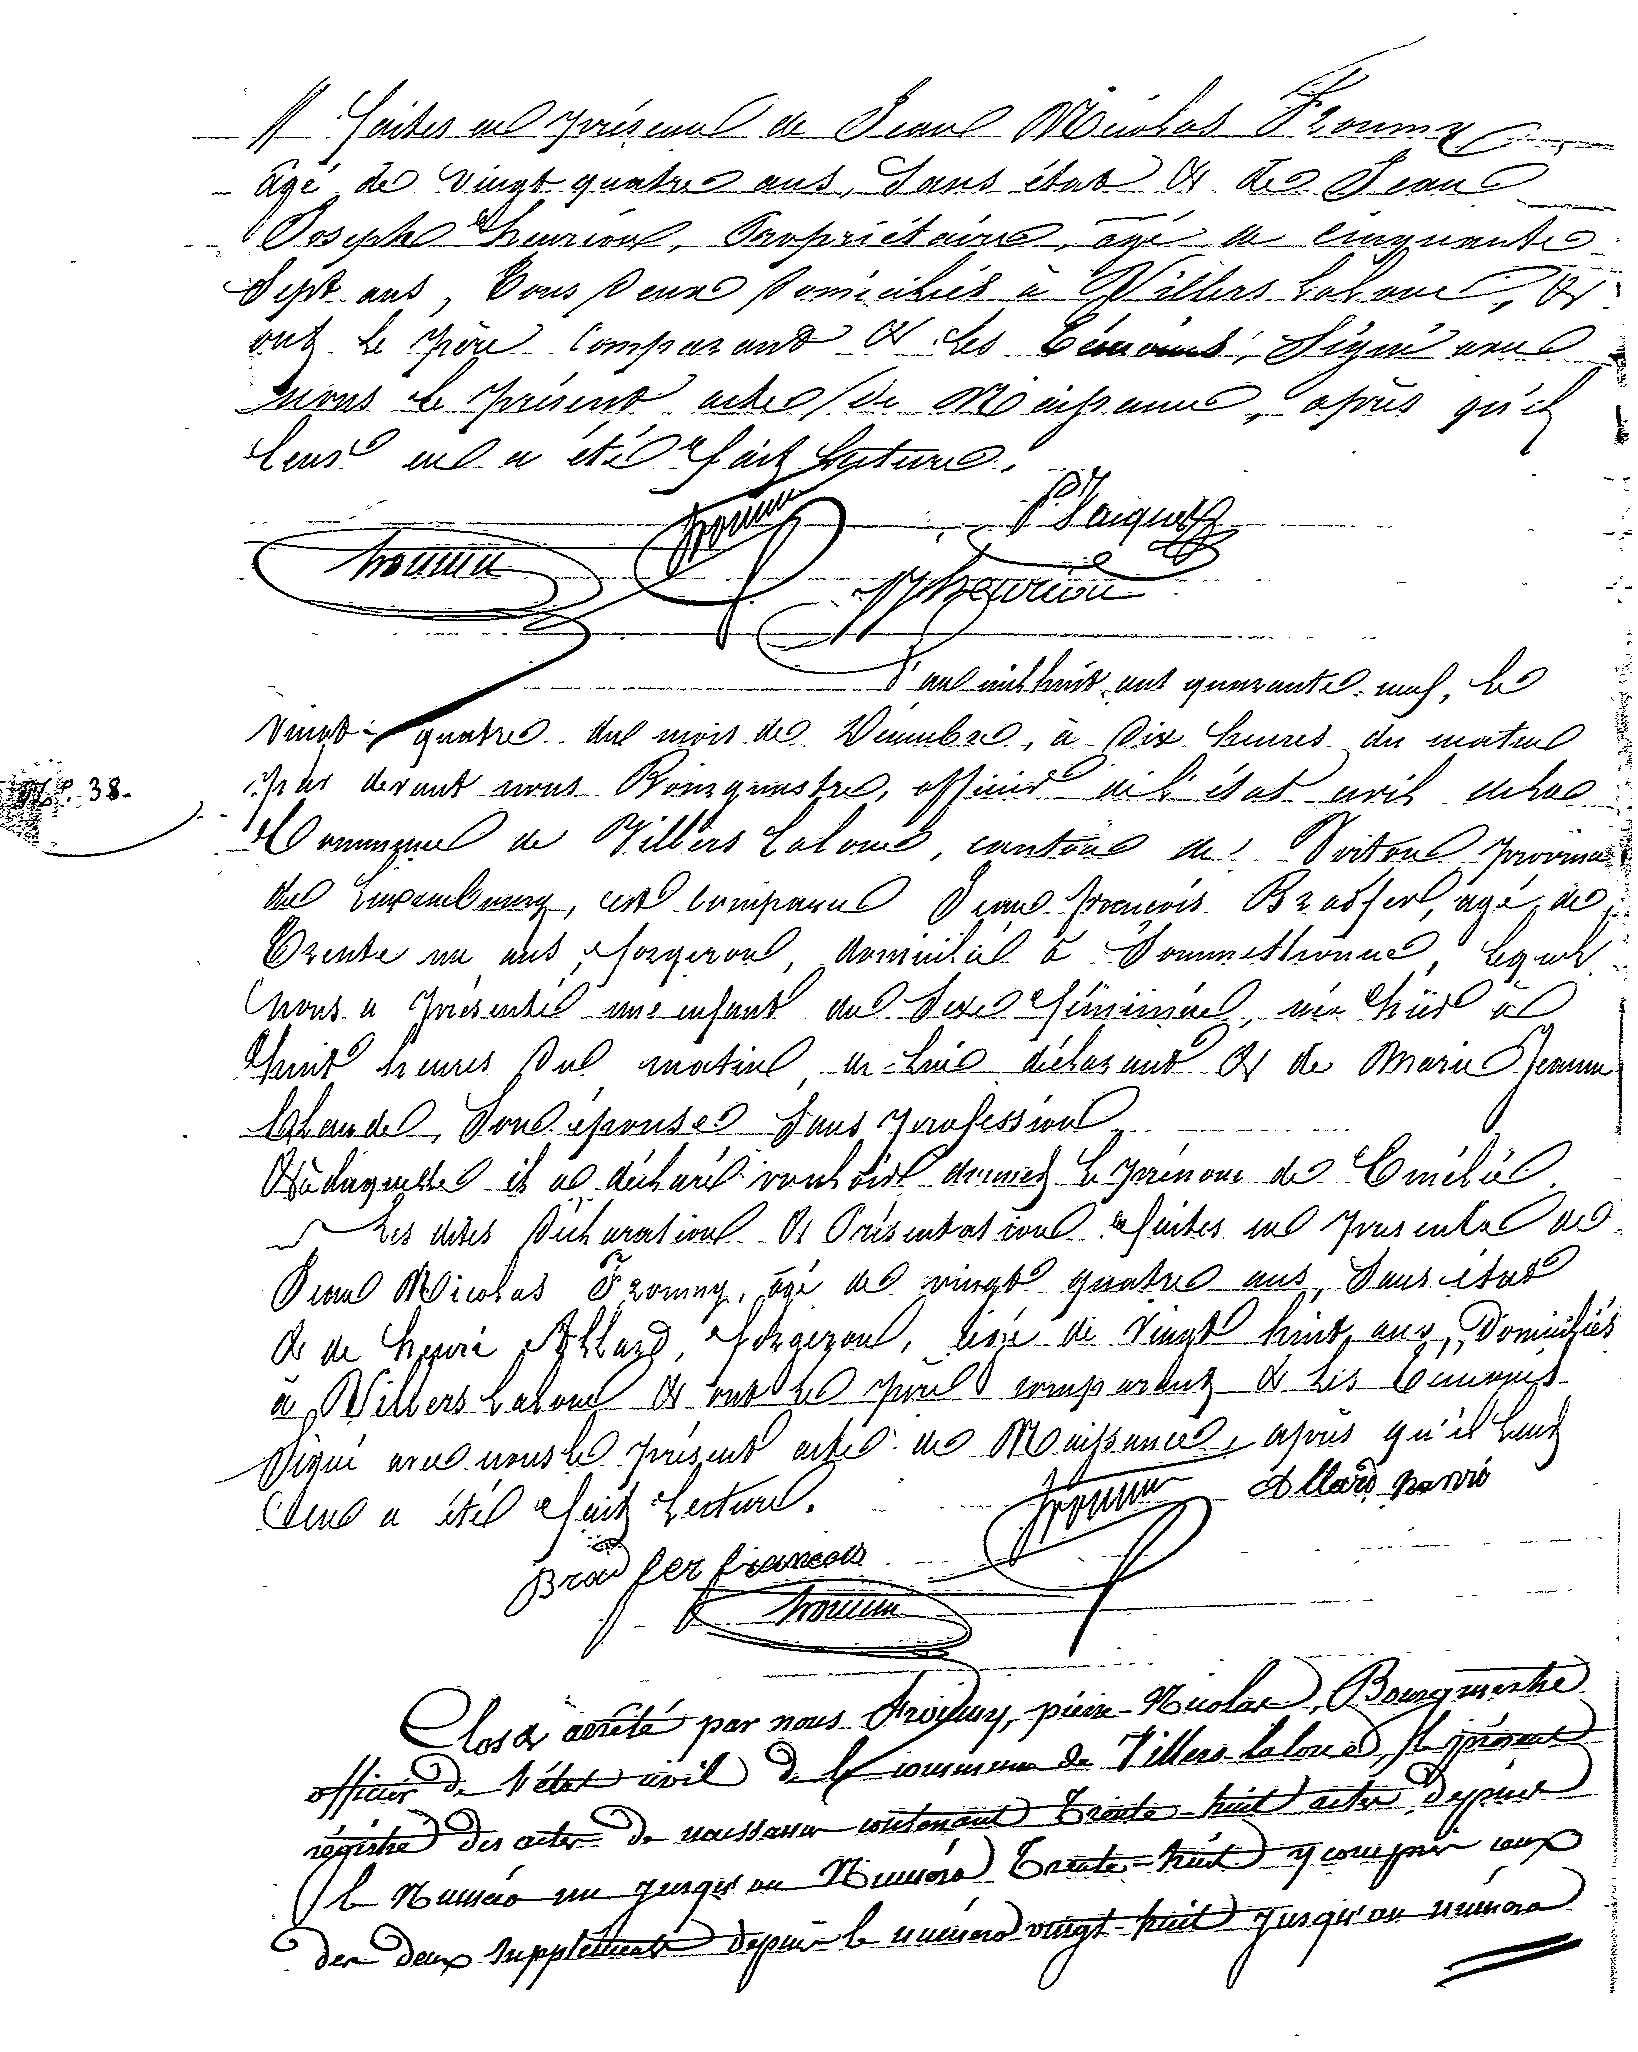 // faites en présence de Jean Nicolas Fromny
âgé de vingt quatre ans, sans état & de Jean
Joseph Henrion, Propriétaire, âgé de cinquante
Sept ans, Tous deux domiciliés à Villers la loue, &
ont le père comparant & les témoins, signé avec
nous le présent acte de Naissance, après qu'il
leur en a été fait lecture.
L'an mil huit cent quarante neuf, le
vingt quatre du mois de Décembre, à dix heures du matin
par devant nous Bourgmestre, officier de l'état civil de la
Commune de Villers la loue, canton de Virton province
de Luxembourg, est comparu Jean François Brasfer, âgé de
Trente un ans, forgeron, domicilié à Sommethonne, lequel
nous a présenté une enfant du sexe féminin, née hier à
huit heures du matin, de lui déclarant & de Marie Jeanne
son épouse sans profession
& à laquelle il a déclaré vouloir donner le prénom de
Les dites déclaration & Présentation faites en présence de
Jean Nicolas Fromny, âgé de vingt quatre ans, sans état
& de Henri Allard, forgeron, âgé de vingt huit ans, Domiciliés
à Villers la loue & ont le père comparant & les témoins
signé avec nous le présent acte de Naissance, après qu'il leur
en a été fait lecture.
N° 38.
Allard henri
Brasfer francois
Clos & arrêté par nous Fromny, pierre-Nicolas, Bourgmestre
officier de l'état civil de la commune de Villers-la loue, le présent
régistre des actes de naissance contenant Trente-huit actes depuis
le Numéro un jusqu'au Numéro Trente-huit y compris ceux
des deux suppléments depuis le numéro vingt-huit jusqu'au numéro